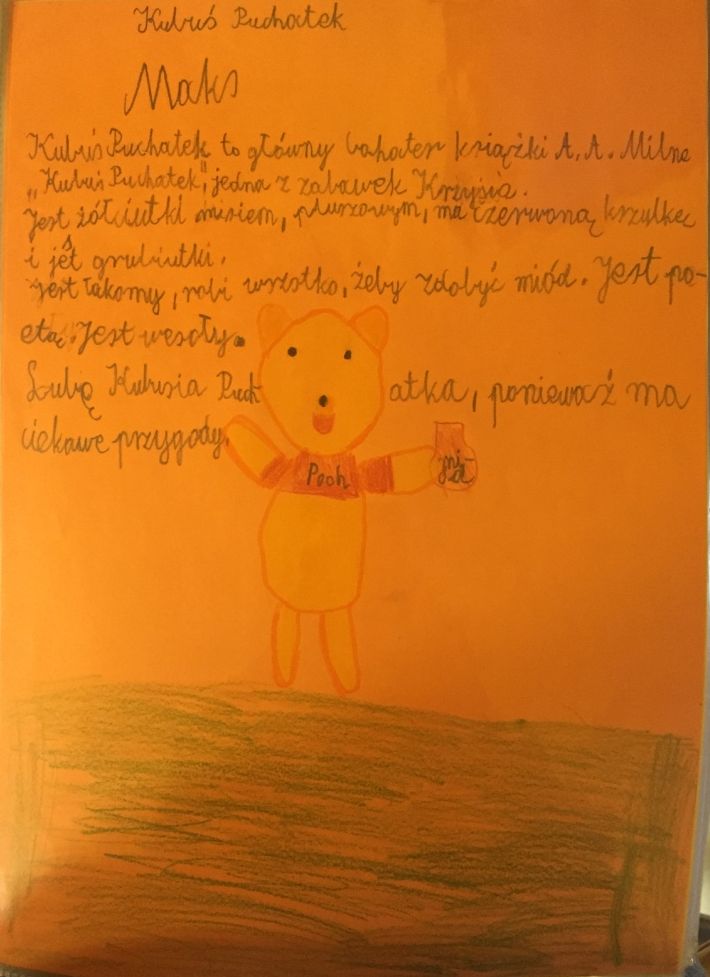 Kubuś Puchatek
Maks
Kubuś Puchatek to główny bohater książki A. A. Milne
„Kubuś Puchatek", jedna z zabawek Krzysia.
Jest żółciutki misiem, pluszowym, ma czerwoną kszulkę
i jest grubiutki.
Jest łakomy, robi wrzotko, żeby zdobyć miód. Jest po-
etą. Jest wesoły.
Lubię Kubusia Puch atka, ponieważ ma
ciekawe przygody.
Pooh